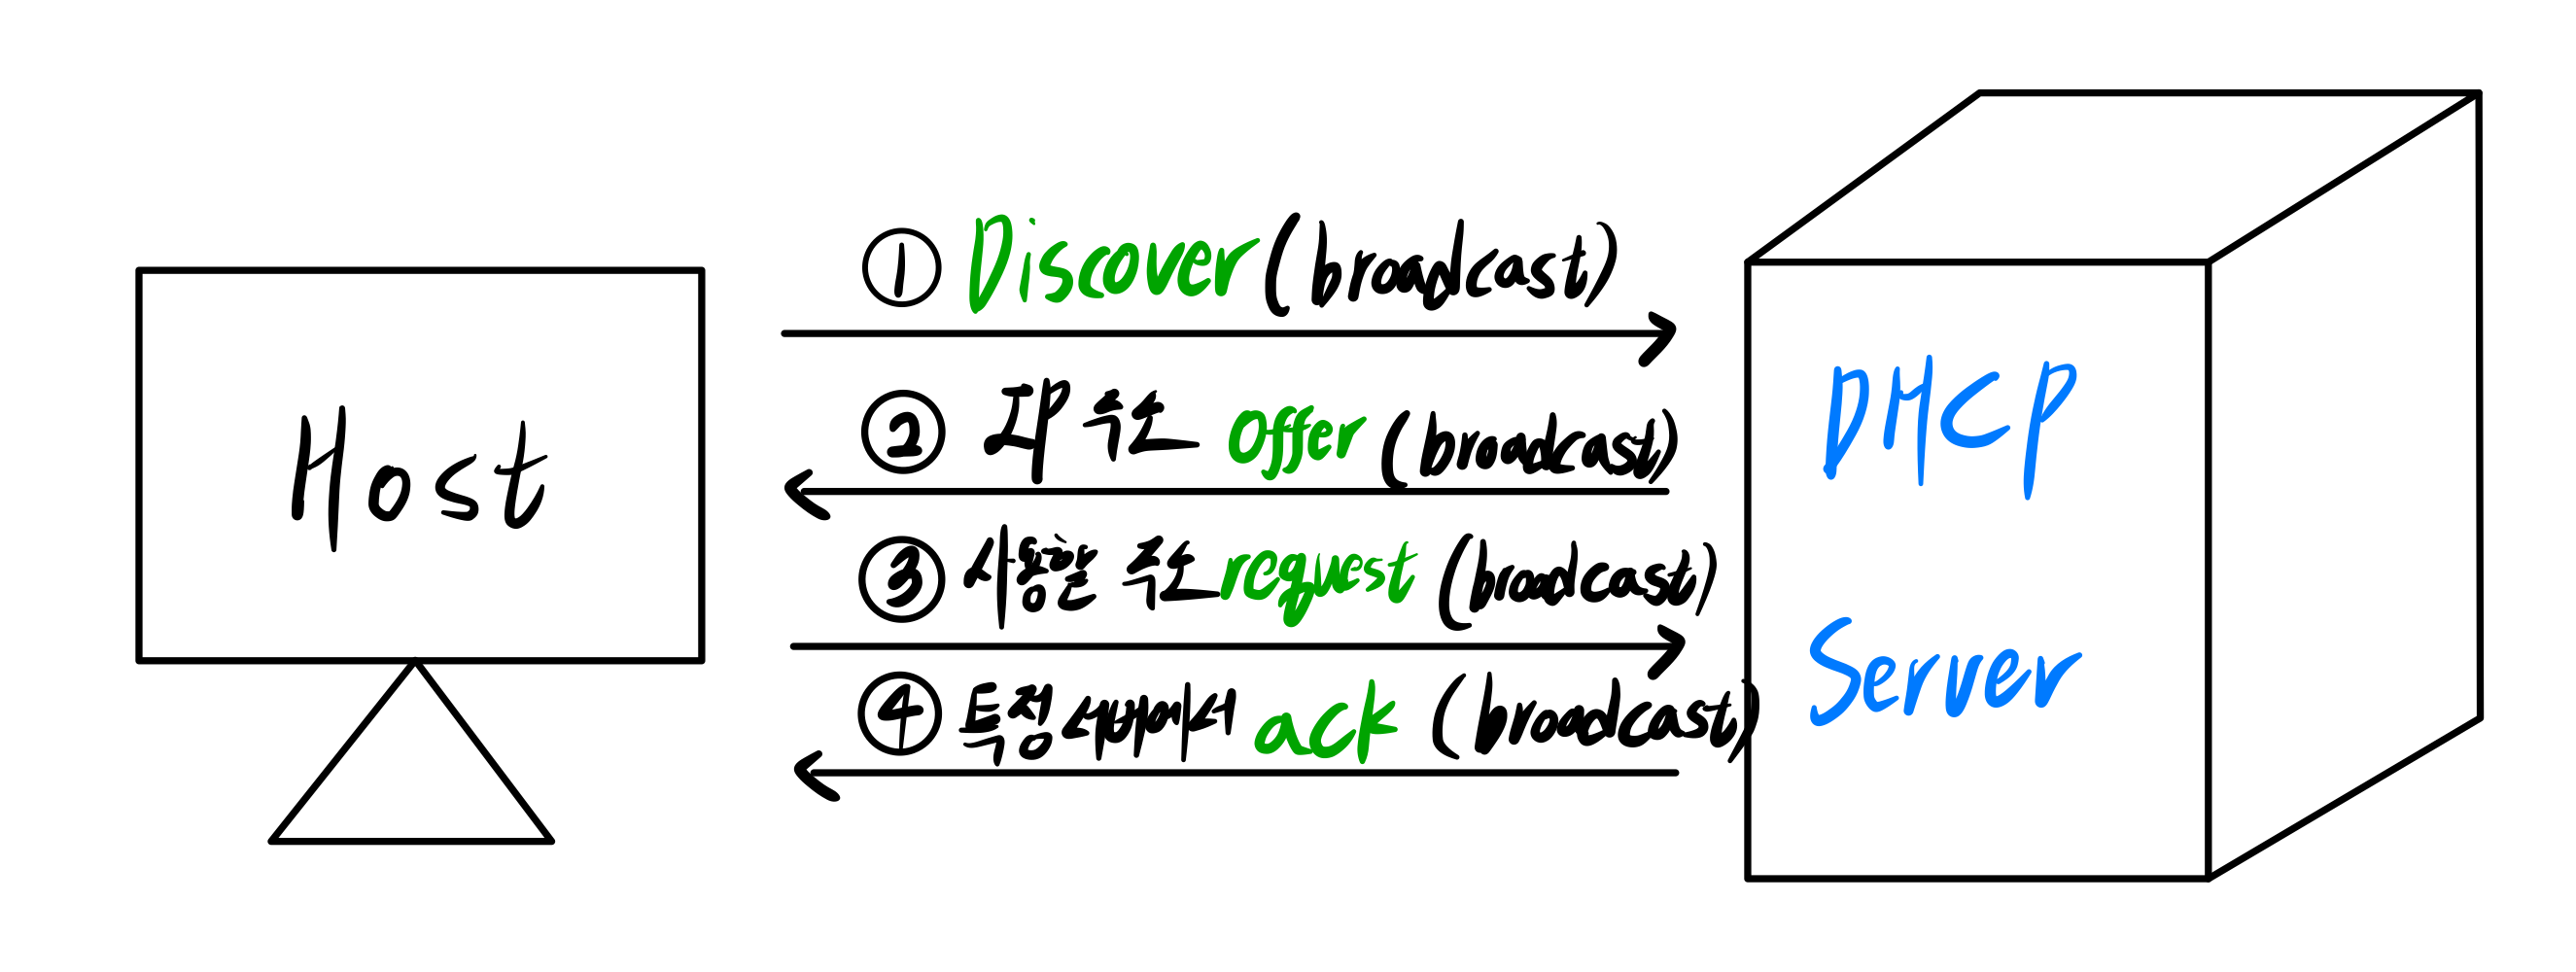 Host
① Discover (broadcast)
② IP 주소 offer (broadcast)
③ 사용할 주소 request (broadcast)
④ 특정 서버에서 ack (broadcast)
DHCP
Server